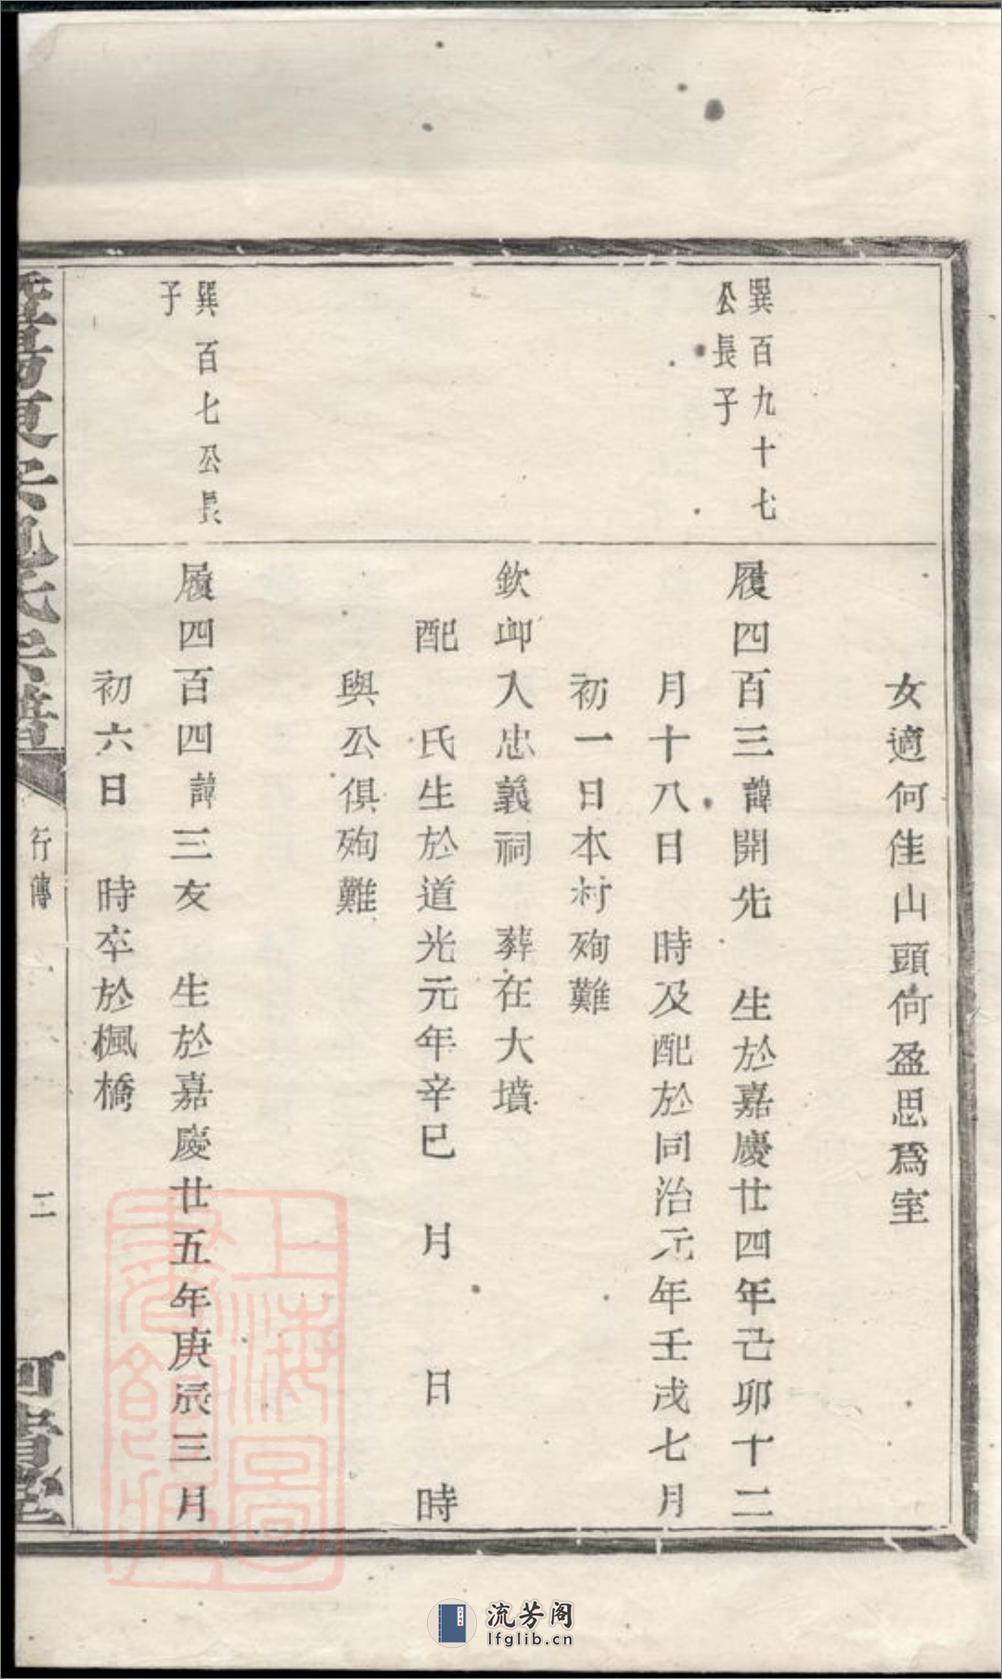 女適何佳山頭何盈思爲室
巽百九十七
公長子
履四百三諱開先　生於嘉慶廿四年己卯十二
月十八日　時及配於同治元年壬戌七月
初一日本村殉難
欽卹入忠義祠　葬在大墳
配　氏生於道光元年辛巳　月　日　時
與公俱殉難
巽百七公長
子
履四百四諱三友　生於嘉慶廿五年庚辰三月
初六日　時卒於楓橋
行傳
二
上海圖
流芳阁
lfglib.cn